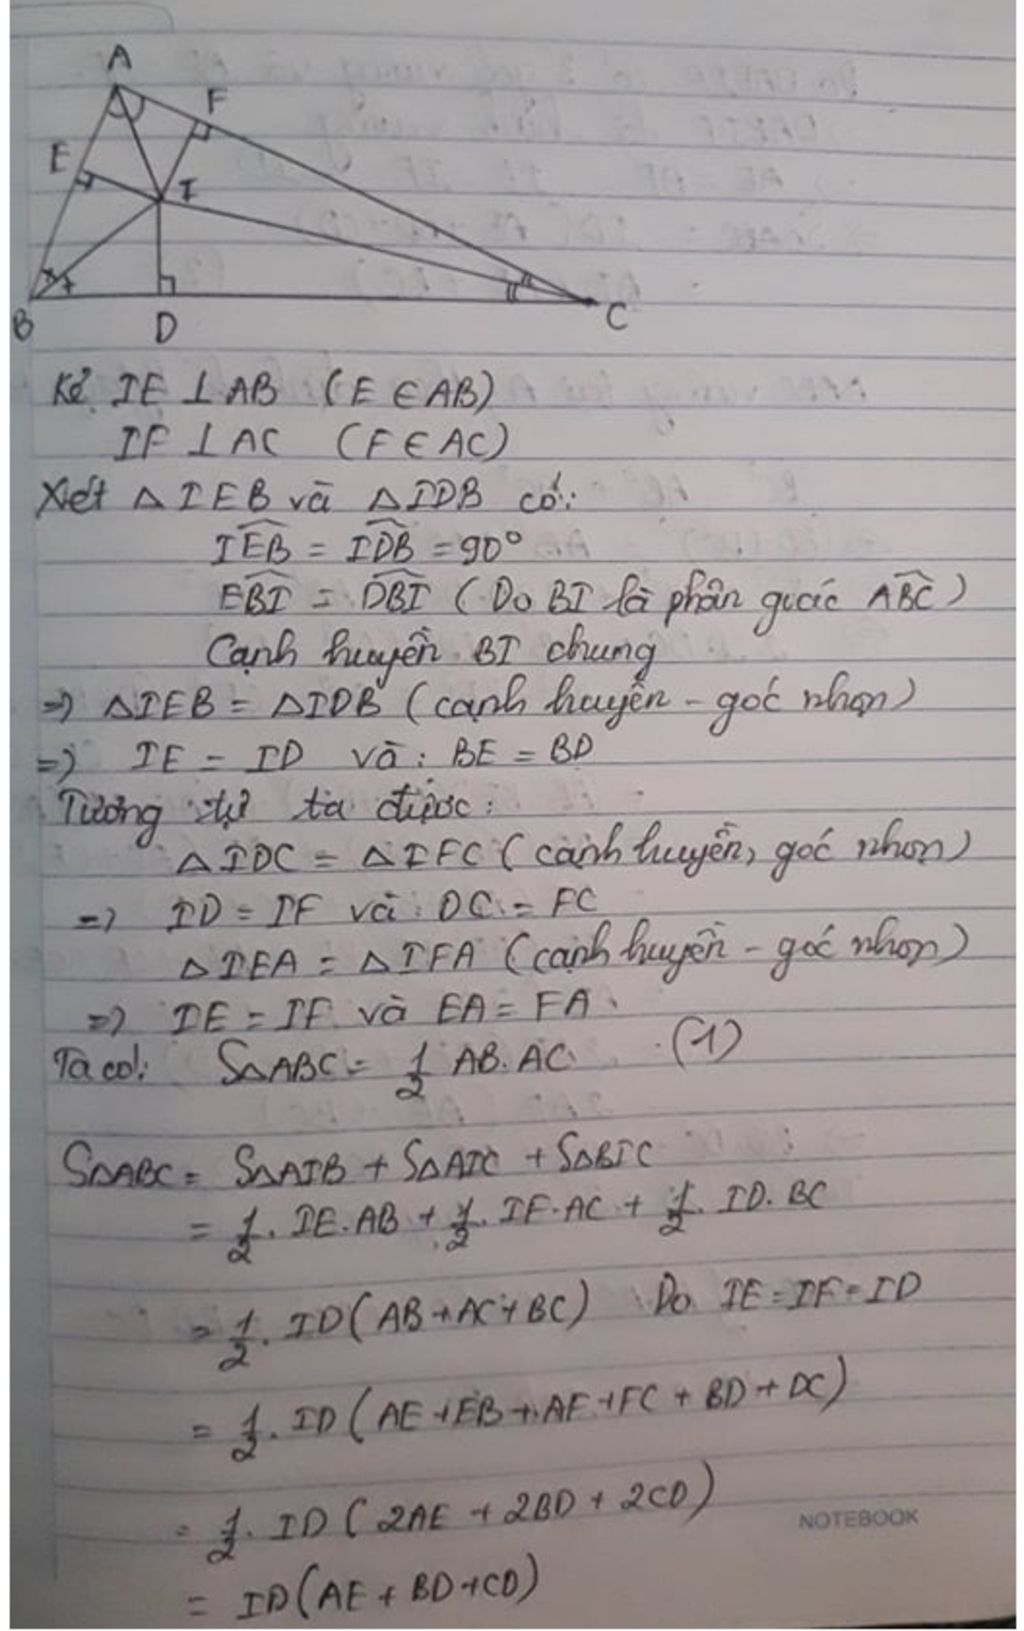 A
F
E
I
B
D
C
Kẻ IE ⊥ AB (E ∈ AB)
IF ⊥ AC (F ∈ AC)
Xét △IEB và △IDB có:
IEB̂ = IDB̂ = 90°
EBÎ = DBÎ (Do BI là phân giác ABĈ)
Cạnh huyền BI chung
=) △IEB = △IDB (cạnh huyền - góc nhọn)
=) IE = ID và: BE = BD
Tương tự ta được:
△IDC = △IFC (cạnh huyền, góc nhọn)
=) ID = IF và: DC = FC
△IEA = △IFA (cạnh huyền - góc nhọn)
=) IE = IF và EA = FA.
Ta có: S△ABC = 1/2 AB. AC. (1)
S△ABC = S△AIB + S△AIC + S△BIC
= 1/2. IE.AB + 1/2. IF.AC + 1/2. ID.BC
= 1/2. ID(AB+AC+BC) Do IE=IF=ID
= 1/2. ID(AE+EB+AF+FC+BD+DC)
= 1/2. ID(2AE + 2BD + 2CD)
NOTEBOOK
= ID(AE + BD+CD)